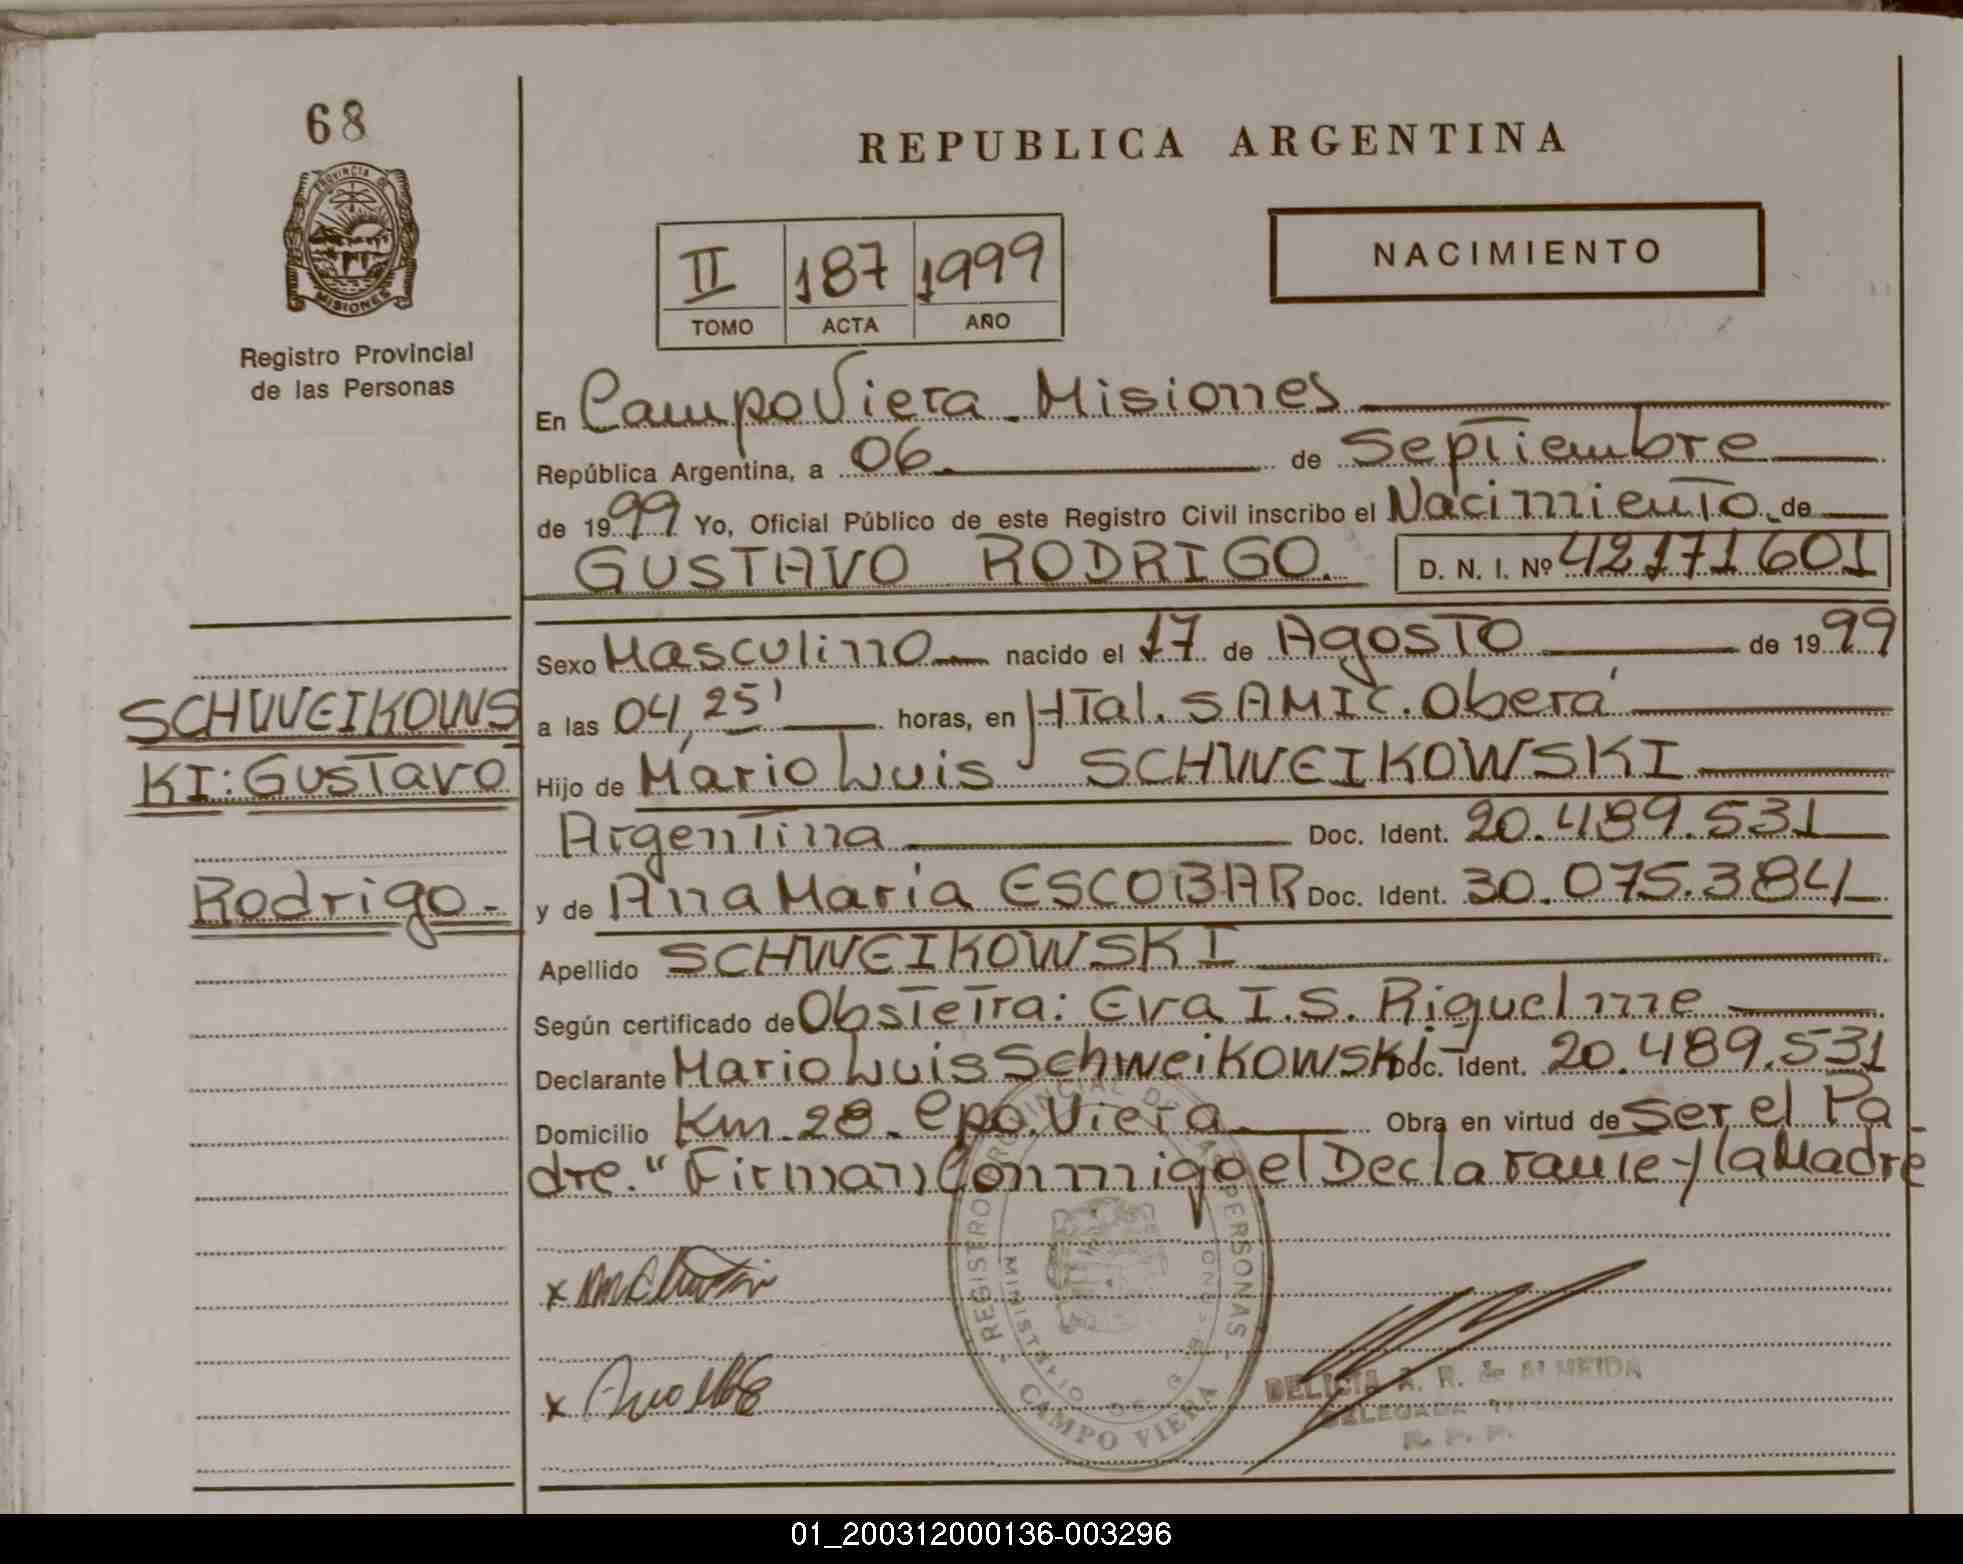 68
REPUBLICA ARGENTINA
PROVINCIA DE
MISIONES
NACIMIENTO
II 187 1999
TOMO ACTA AÑO
Registro Provincial
de las Personas
En Campo Viera - Misiones
República Argentina, a 06 de Septiembre
de 1999 Yo, Oficial Público de este Registro Civil inscribo el Nacimiento de
GUSTAVO RODRIGO. D. N. I. Nº 42171601
Sexo Masculino nacido el 17 de Agosto de 1999
SCHWEIKOWS
KI: Gustavo
Rodrigo.-
a las 04,25' horas, en HTal. SAMIC. Oberá
Hijo de Mario Luis SCHWEIKOWSKI
Argentina Doc. Ident. 20.489.531
y de Ana María ESCOBAR Doc. Ident. 30.075.384
Apellido SCHWEIKOWSKI
Según certificado de Obstetra: Eva I.S. Riquelme
Declarante Mario Luis Schweikowski Doc. Ident. 20.489.531
Domicilio Km. 28 - Cpo. Viera Obra en virtud de Ser el Pa-
dre." Firman Conmigo el Declarante y la Madre
REGISTRO PROVINCIAL DE LAS PERSONAS
MINISTERIO DE
CAMPO VIERA
DELICIA A. R. de ALMEIDA
DELEGADA
R. P. P.
01_200312000136-003296